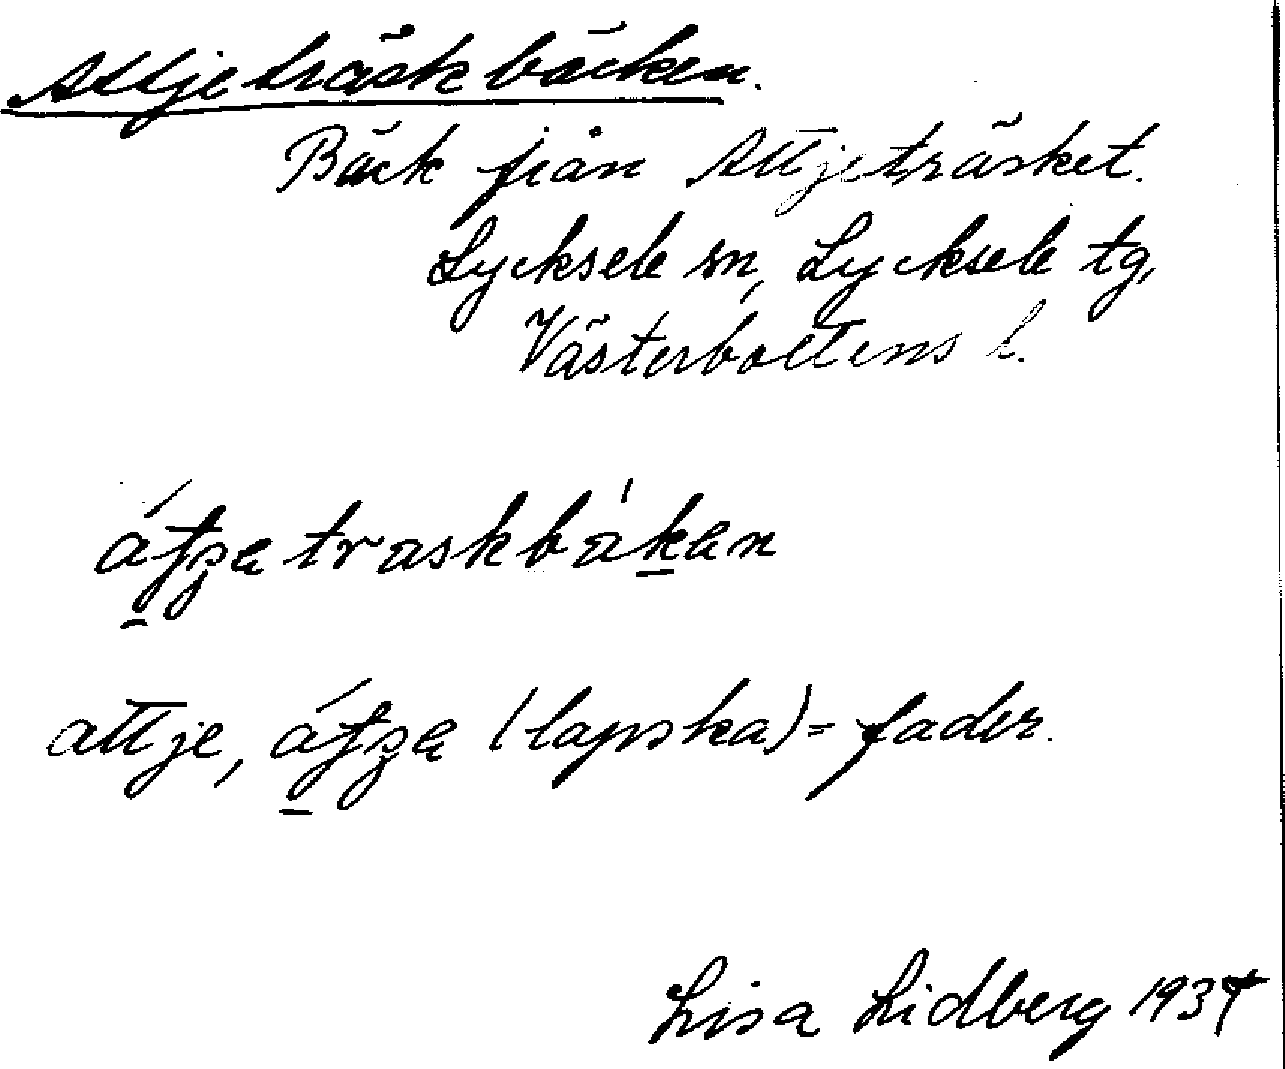 Attjeträskbäcken.
Bäck från Attjeträsket.
Lycksele sn, Lycksele tg,
Västerbottens l.
attje, (lapska) = fader.
Lisa Lidberg 1934